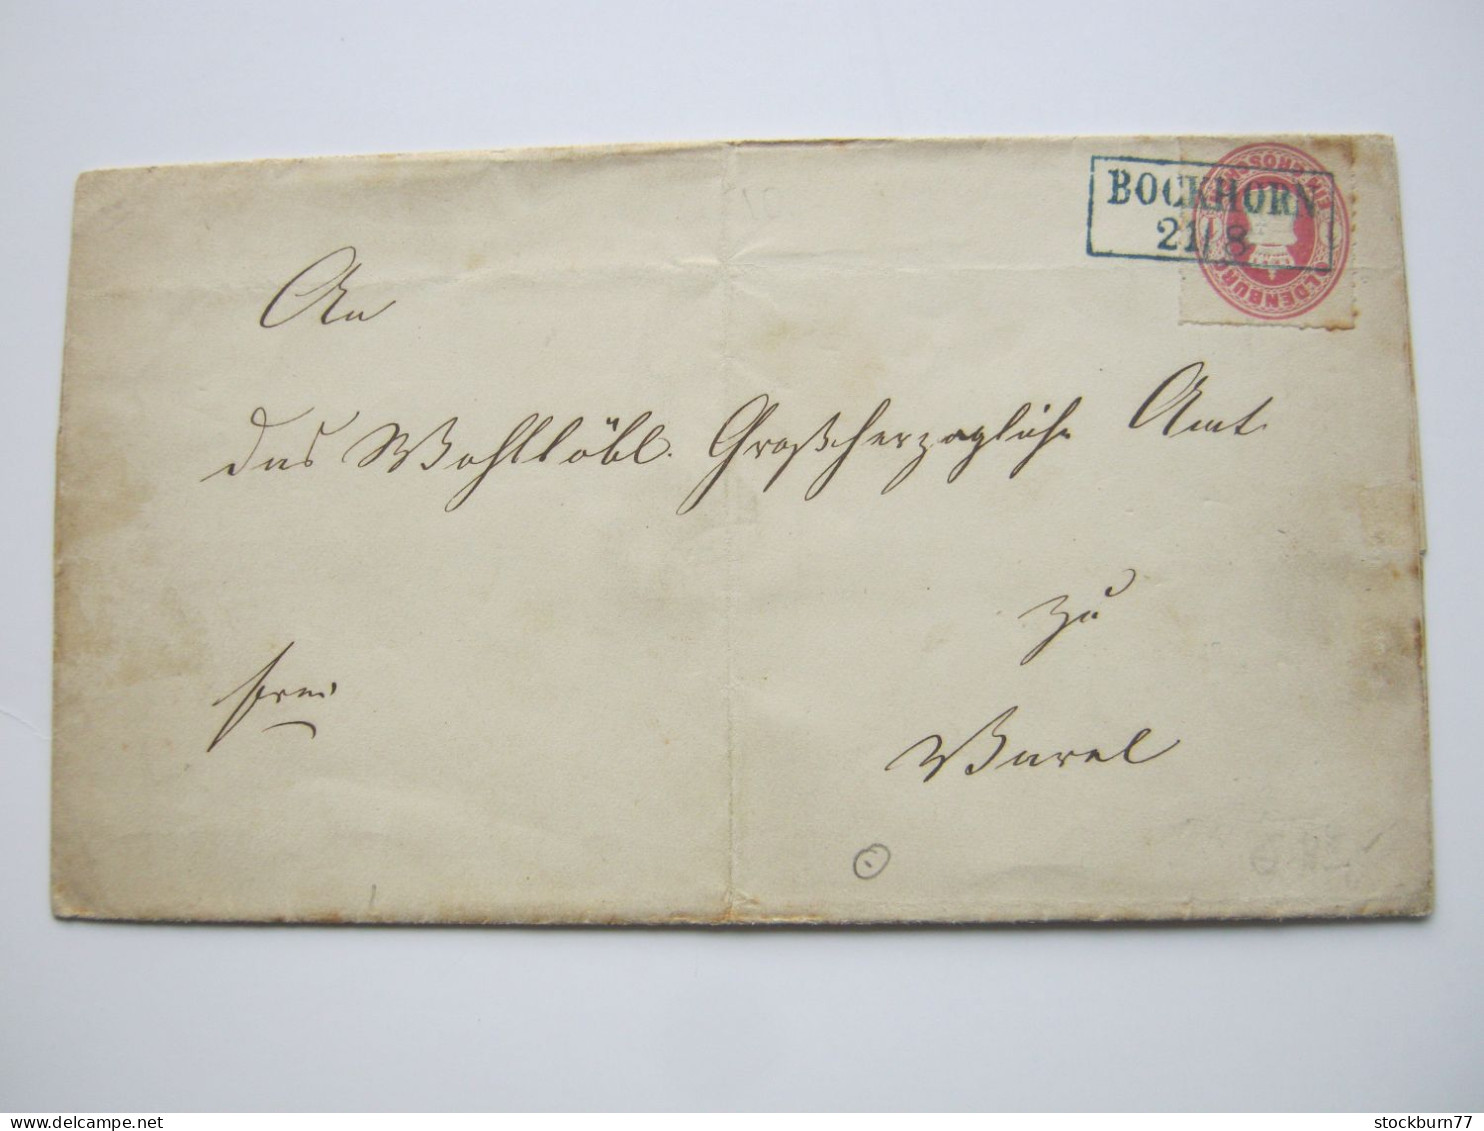 BOCKHORN
21/8
EIN GROSCHEN
OLDENBURG
An
das Wohllöbl. Großherzogliche Amt
zu
frei
Varel
stockburn77